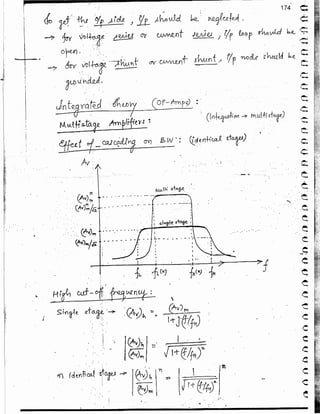 174
To get the O/p side, I/p should be neglected.
→ for voltage series or current series, I/p loop should be
open.
→ for voltage shunt or current shunt, I/p node should be
grounded.
Integrated theory (OP-Amps) :
Multistage Amplifiers : (Integration → multistage)
Effect of cascading on B.W : (Identical stages)
Av
Multi stage
(Av)m^n
(Av)m^n/√2
single stage
(Av)m
(Av)m/√2
fL fL(n) fH(n) fH f
High cut-off frequency :
Single stage → (Av)h = (Av)m / 1+j(f/fH)
|(Av)h / (Av)m| = 1 / √1+(f/fH)²
n identical stages → |(Av)h / (Av)m|^n = | 1 / √1+(f/fH)² |^n